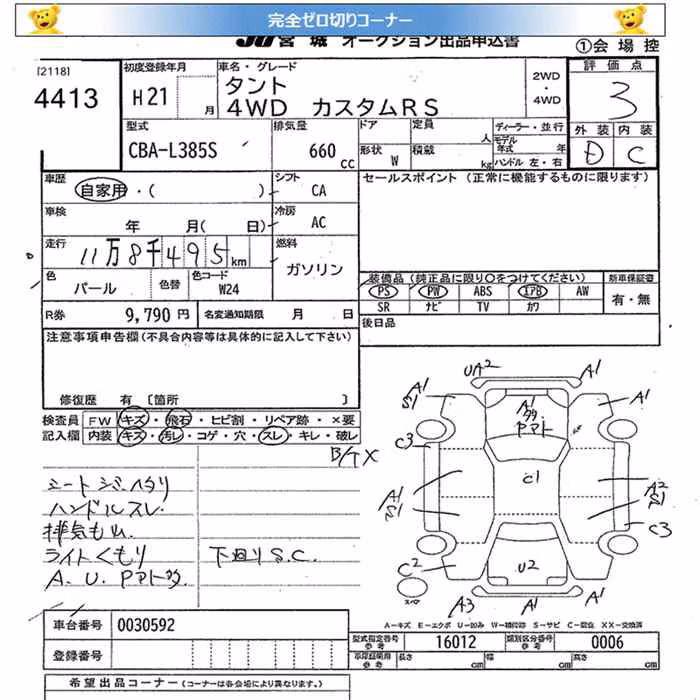 完全ゼロ切りコーナー
JU宮城 オークション出品申込書
①会場控
[2118]
4413
初度登録年月
H21 月
車名・グレード
タント
4WD カスタムRS
2WD
・
4WD
評価点
3
型式
CBA-L385S
排気量
660 cc
ドア
定員
人
形状
W
積載
kg
ディーラー・並行
モデル年式 年
ハンドル 左・右
外装 内装
D C
車歴
自家用・( )
シフト
CA
セールスポイント (正常に機能するものに限ります)
車検
年 月( 日)
冷房
AC
走行
11万8千495km
燃料
ガソリン
色
パール
色替
色コード
W24
装備品(純正品に限り○をつけてください)
新車保証書
PS PW ABS エアB AW
SR ナビ TV カワ
有・無
R券
9,790 円
名変通知期限 月 日
後日品
注意事項申告欄(不具合内容等は具体的に記入して下さい)
修復歴 有 [箇所 ]
検査員
記入欄
FW キズ・飛石・ヒビ割・リペア跡・×要
内装 キズ・汚レ・コゲ・穴・スレ・キレ・破レ
B/TX
ハンドルスレ
ライトくもり
下回りS.C.
UA2
A1
A1
S1
A1
A1
C3
C1
A1
S1
A2
S1
C3
C2
U2
スペア
A3
A1
A1
A=キズ E=エクボ U=凹み W=補修跡 S=サビ C=腐食 XX=交換済
車台番号
0030592
登録番号
型式指定番号
参考
16012
類別区分番号
参考
0006
車庫証明用
参考
長さ cm
幅 cm
高さ cm
希望出品コーナー (コーナーは各会場により異なります。)